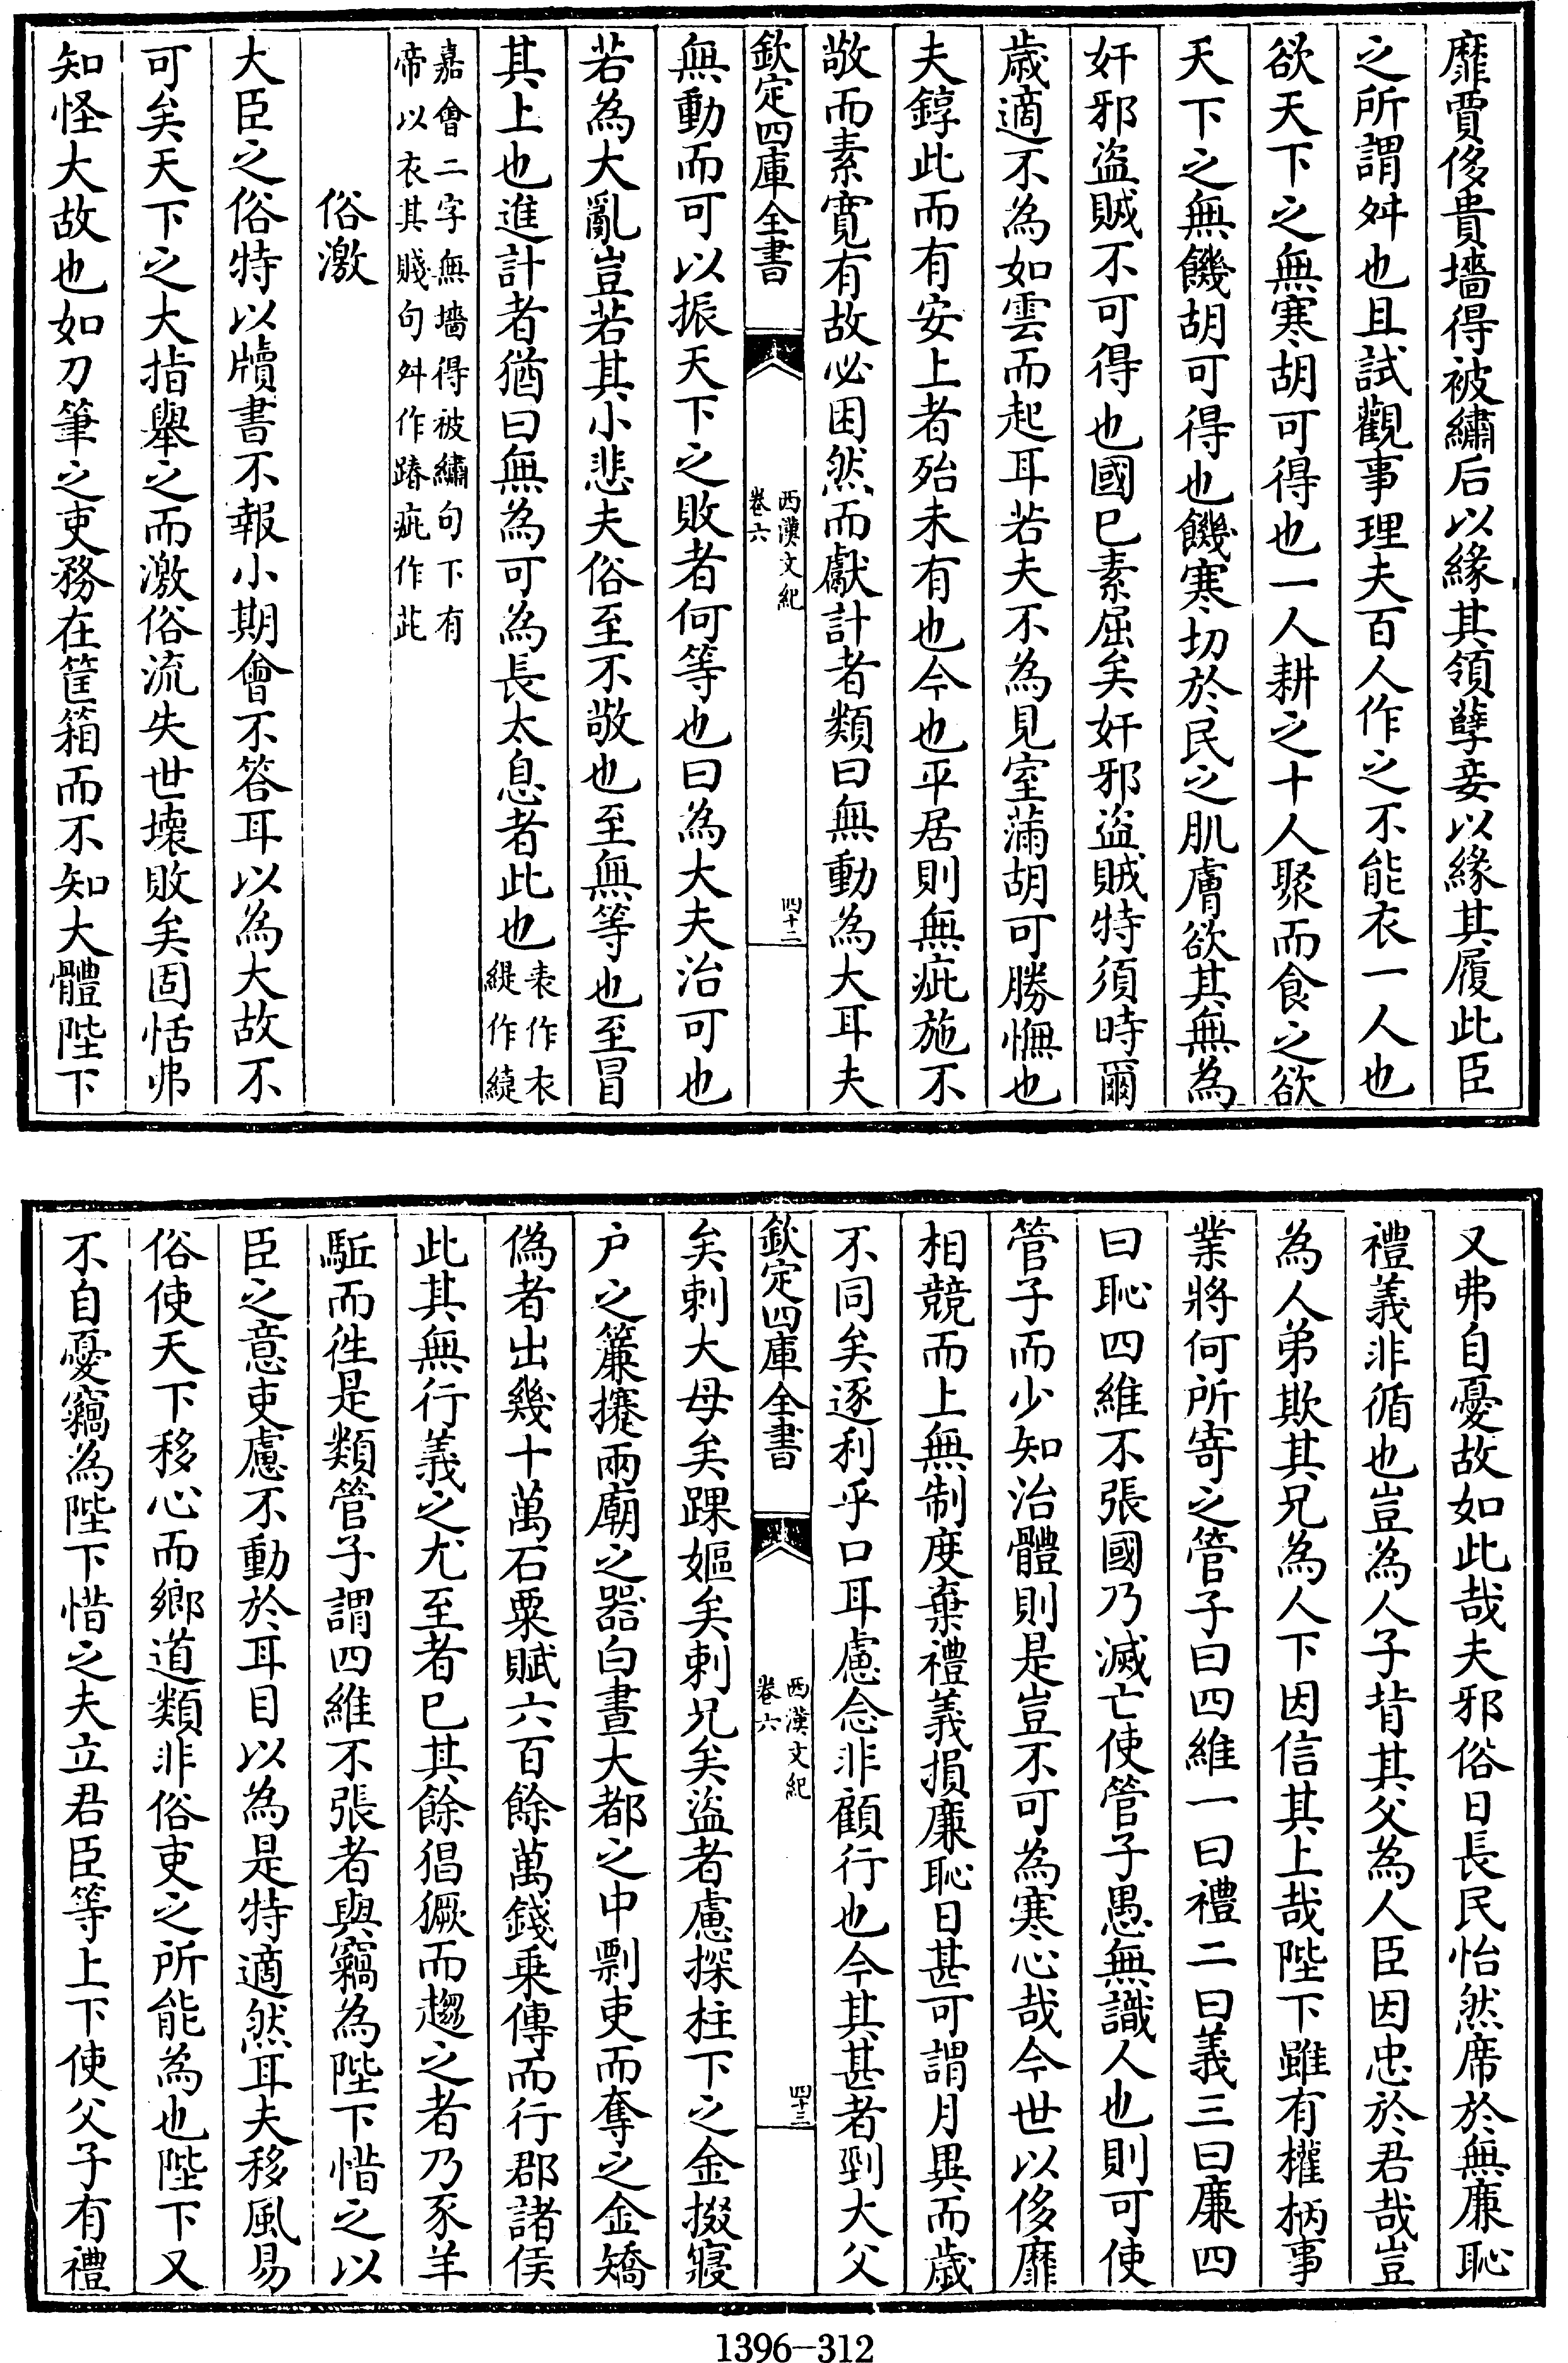 靡賈侈貴墻得被繡后以緣其領孽妾以緣其履此臣
之所謂舛也且試觀事理夫百人作之不能衣一人也
欲天下之無寒胡可得也一人耕之十人聚而食之欲
天下之無饑胡可得也饑寒切於民之肌膚欲其無為
奸邪盜賊不可得也國已素屈矣奸邪盜賊特須時爾
歳適不為如雲而起耳若夫不為見室滿胡可勝憮也
夫錞此而有安上者殆未有也今也平居則無疵施不
敬而素寛有故必困然而獻計者類曰無動為大耳夫
欽定四庫全書
西漢文紀
卷六
四十二
無動而可以振天下之敗者何等也曰為大夫治可也
若為大亂豈若其小悲夫俗至不敬也至無等也至冒
其上也進計者猶曰無為可為長太息者此也
表作衣
緹作緁
嘉會二字無墻得被繡句下有
帝以衣其賤句舛作踳疵作茈
俗激
大臣之俗特以牘書不報小期會不答耳以為大故不
可矣天下之大指舉之而激俗流失世壞敗矣固恬弗
知怪大故也如刀筆之吏務在筐箱而不知大體陛下
又弗自憂故如此哉夫邪俗日長民怡然席於無廉恥
禮義非循也豈為人子背其父為人臣因忠於君哉豈
為人弟欺其兄為人下因信其上哉陛下雖有權柄事
業將何所寄之管子曰四維一曰禮二曰義三曰廉四
曰恥四維不張國乃滅亡使管子愚無識人也則可使
管子而少知治體則是豈不可為寒心哉今世以侈靡
相競而上無制度棄禮義損廉恥日甚可謂月異而歳
不同矣逐利乎口耳慮念非顧行也今其甚者剄大父
欽定四庫全書
西漢文紀
卷六
四十三
矣刺大母矣踝嫗矣刺兄矣盜者慮探柱下之金掇寢
户之簾攓兩廟之器白晝大都之中剽吏而奪之金矯
偽者出幾十萬石粟賦六百餘萬錢乗傳而行郡諸侯
此其無行義之尤至者已其餘猖獗而趨之者乃豕羊
駈而徃是類管子謂四維不張者與竊為陛下惜之以
臣之意吏慮不動於耳目以為是特適然耳夫移風易
俗使天下移心而鄉道類非俗吏之所能為也陛下又
不自憂竊為陛下惜之夫立君臣等上下使父子有禮
1396-312